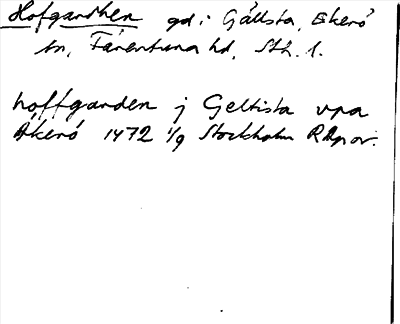 Hofgardhen gd i Gällsta, Ekerö
sn, Färentuna hd, Sth. l.
hoffgarden j Geltista vpa
Ekerö 1472 1/9 Stockholm RApor.